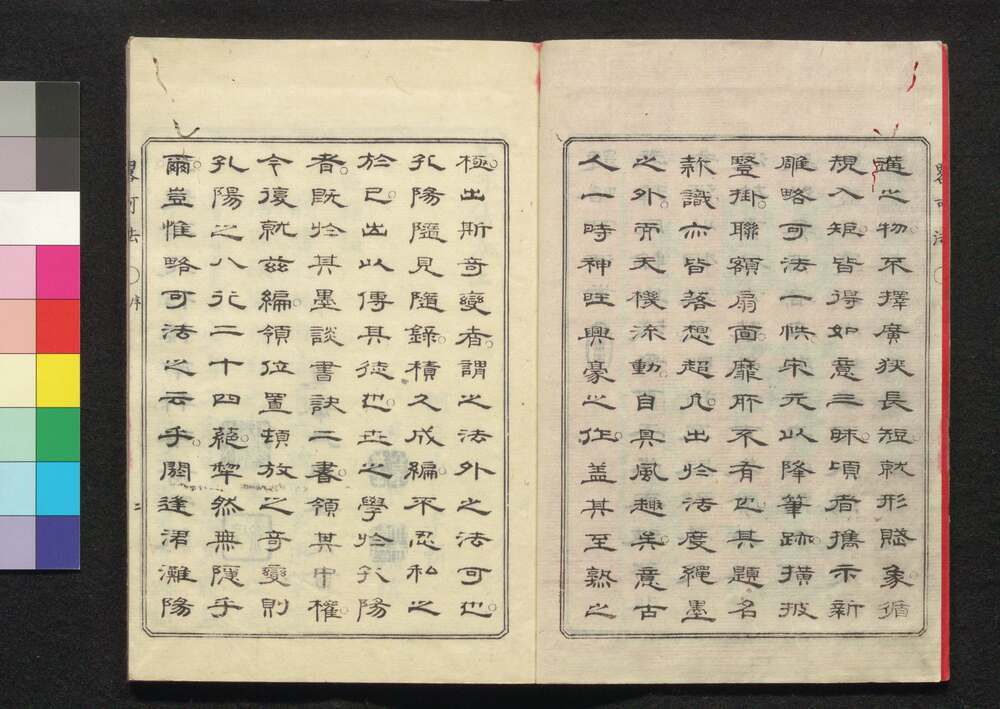 之物。不擇廣狹長短。就形賦象。循
規入矩。皆得如意三昧。頃者攜示新
雕略可法一帙。宋元以降筆跡。橫披
豎掛。聯額扇面。靡所不有也。其題名
款識亦皆落想超凡。出於法度繩墨
之外。而天機流動。自具風趣矣。意古
人一時神旺興豪之作。蓋其至熟之
畧可法 ○ 序
極。出斯奇變者。謂之法外之法可也。
孔陽隨見隨錄。積久成編。不忍私之
於己。出以傳其徒也。世之學於孔陽
者。既於其墨談書訣二書。領其中權。
今復就茲編。領位置頓放之奇變。則
孔陽之八 二十四 犂然無隱乎
爾。豈惟略可法之云乎。閼逢涒灘陽
畧可法 ○ 序 二